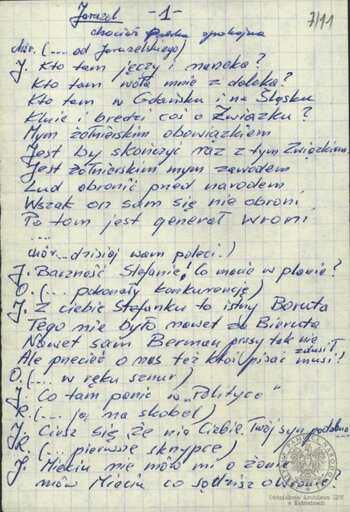 Jaruzel -1- 7/11
chociaż Polska spokojna
chór. (... od Jaruzelskiego)
J. Kto tam jęczy i narzeka?
Kto tam woła mnie z daleka?
Kto tam w Gdańsku i na Śląsku
Klnie i bredzi coś o Związku?
Mym żołnierskim obowiązkiem
Jest by skończyć raz z tym Związkiem
Jest żołnierskim mym zawodem
Lud obronić przed narodem,
Wszak on sam się nie obroni,
Po tom jest generał Wroni,
...
chór ... dzisiaj wam poleci!)
J. Baczność Stefanie! Co macie w planie?
O. (... pokonały konkurencję)
J. Z ciebie Stefanku to istny Boruta
Tego nie było nawet za Bieruta
Nawet sam Berman prasy tak nie zdusił
Ale przecież o nas też ktoś pisać musi!
O. (... w ręku sznur)
J. Co tam panie w „Polityce"
R. (... ja, ma skobel)
J. Ciesz się, że nie Ciebie, Twój syn podobno
R. (... pierwsze skrzypce)
J. Mieciu nie mów mi o żonie
mów Mieciu co sądzisz o Wronie?
PAMIĘCI NARODOWEJ
Oddziałowe Archiwum IPN
w Katowicach